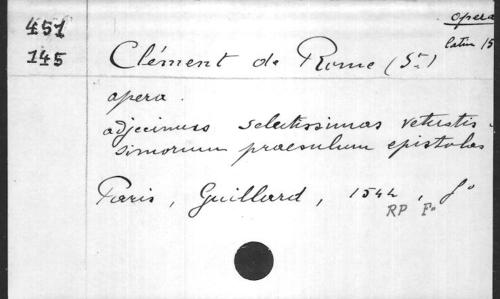 451
145
opera
latin 15
Clément de Rome (St)
opera.
adjecimus selectissimas vetustis-
simorum praesulum epistolas
Paris, Guillard, 1544, fo
RP Fo